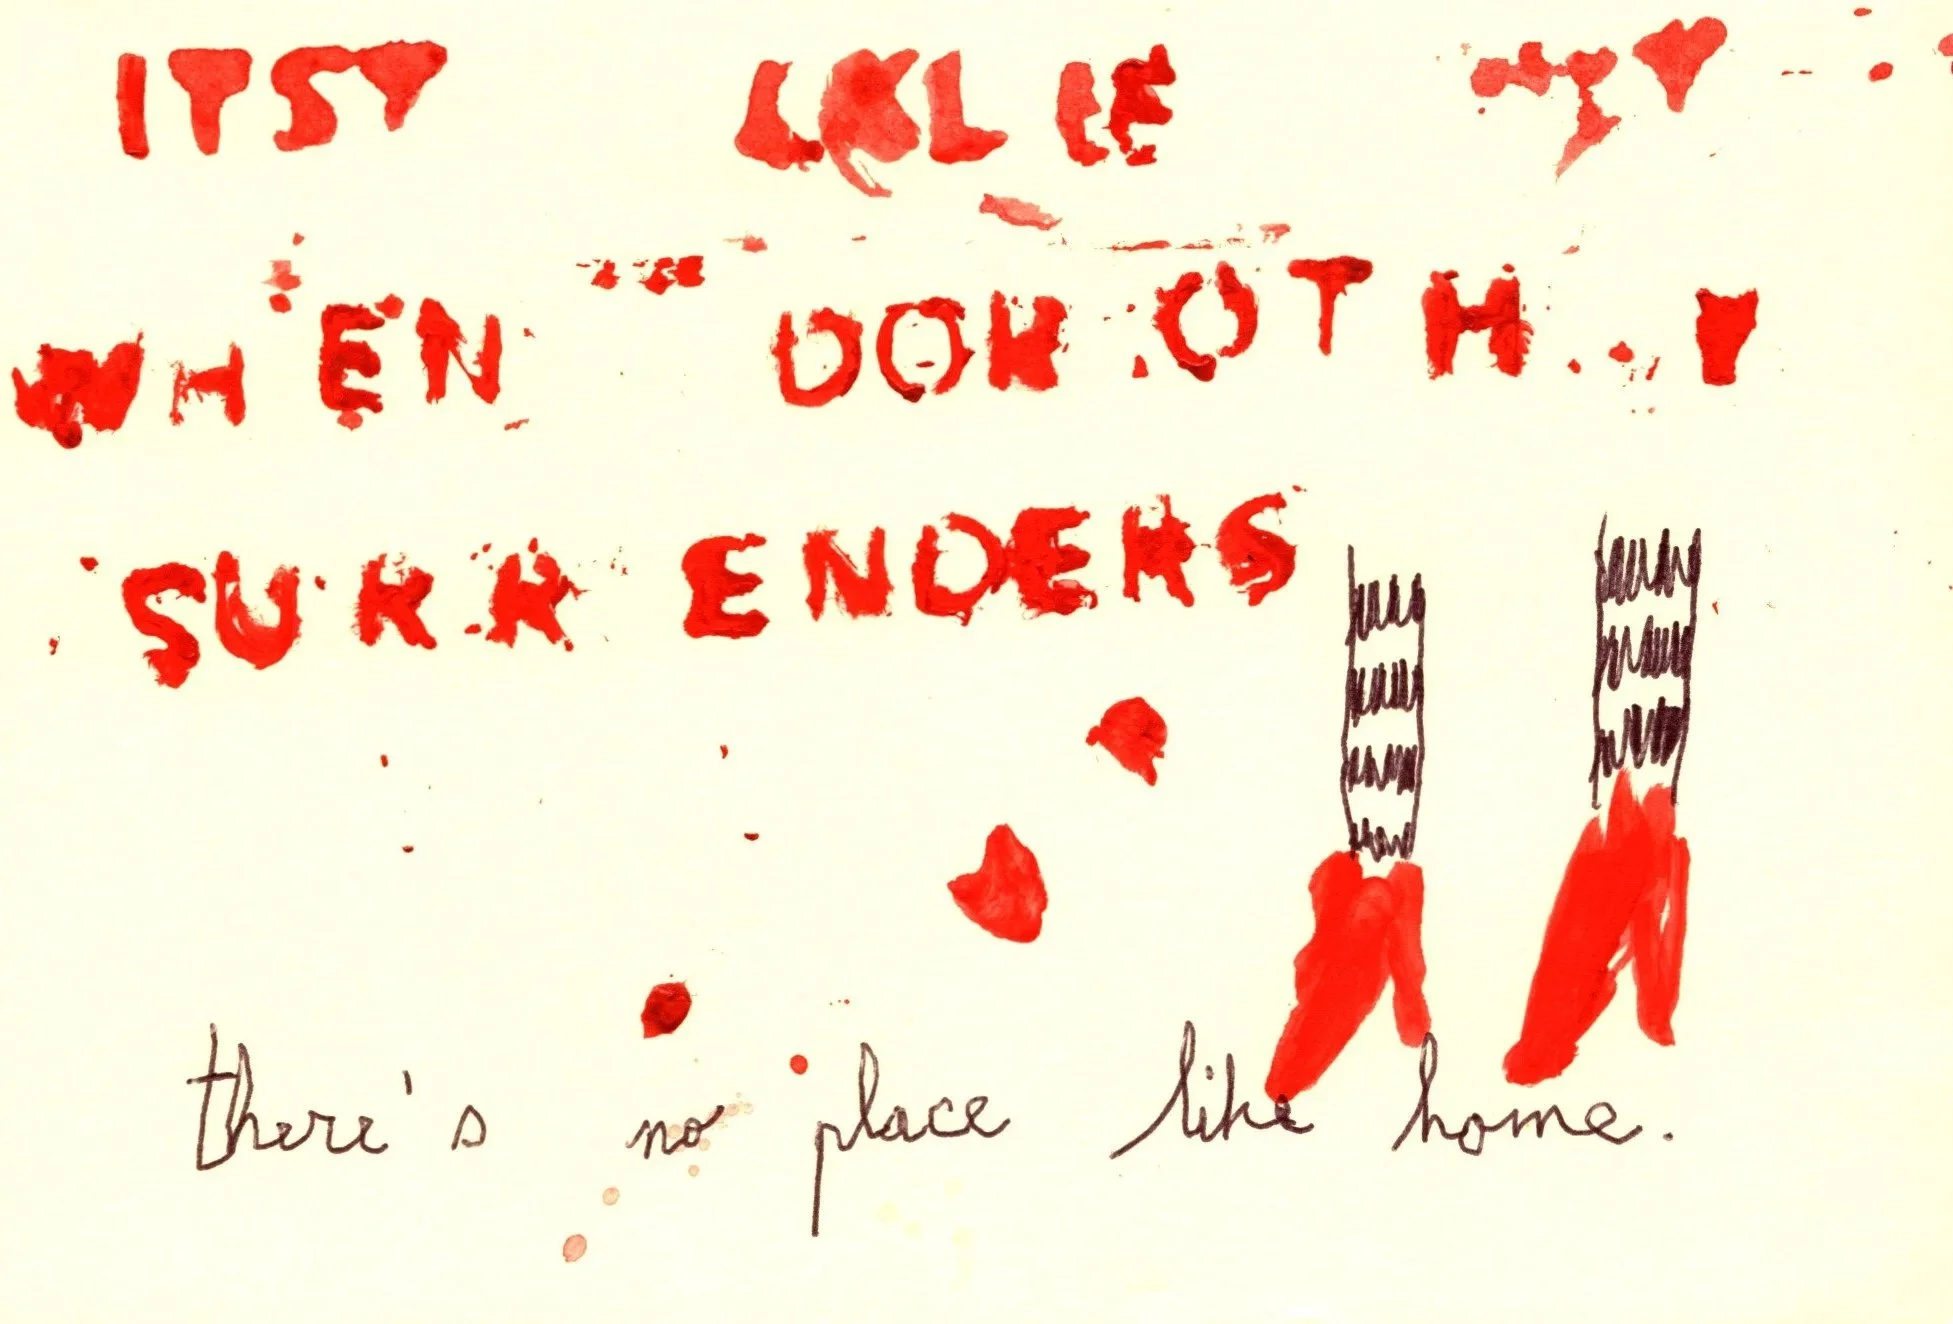 ITS
WHEN DOROTHY
SURRENDERS
there's no place like home.